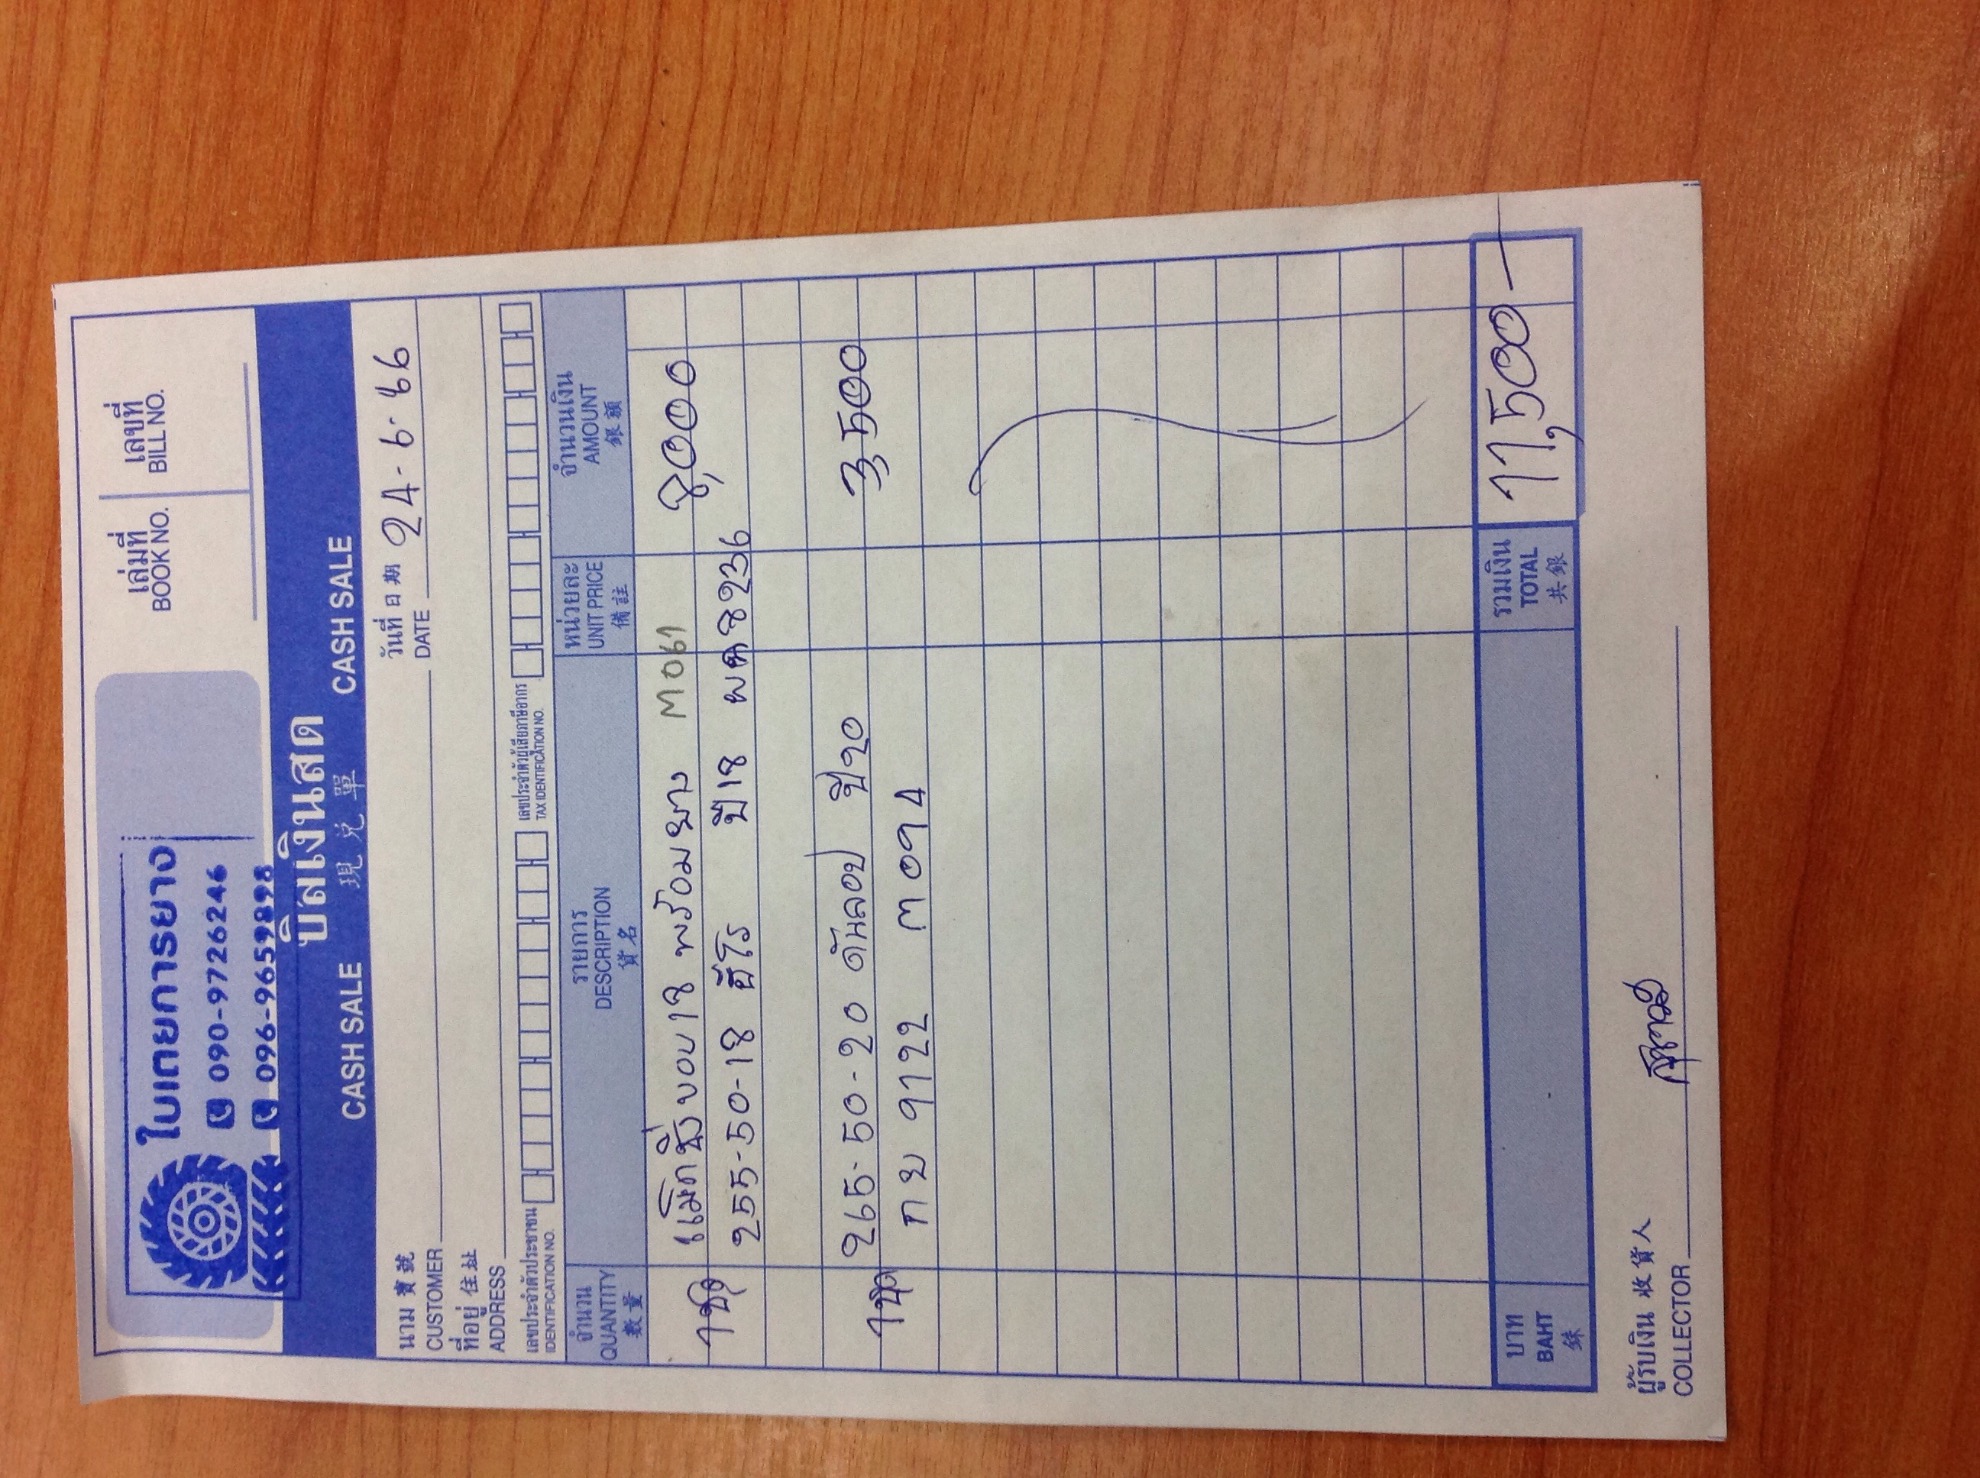 ใบเตยการยาง
090-9726246
096-9659898
เล่มที่ เลขที่
BOOK NO. BILL NO.
บิลเงินสด
CASH SALE 現兌單 CASH SALE
วันที่ 日期 24-6-66
DATE
นาม 寶號
CUSTOMER
ที่อยู่ 住址
ADDRESS
เลขประจำตัวประชาชน เลขประจำตัวผู้เสียภาษีอากร
IDENTIFICATION NO. TAX IDENTIFICATION NO.
จำนวน รายการ หน่วยละ จำนวนเงิน
QUANTITY DESCRIPTION UNIT PRICE AMOUNT
數量 貨名 備註 銀額
1ชุด แม็กซิ่งขอบ18 พร้อมยาง M061 8,000
255-50-18 ปี18 ผค8236
1ชุด 265-50-20 ดันลอป ปี20 3,500
กย 9122 M094
บาท รวมเงิน 11,500-
BAHT TOTAL
銖 共銀
ผู้รับเงิน 收貨人
COLLECTOR